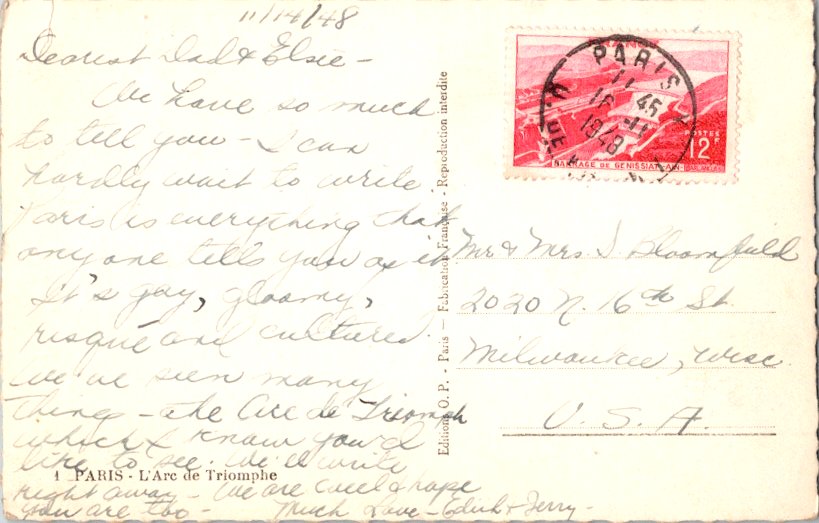 11/14/48
Dearest Dad & Elsie -
We have so much
to tell you - I can
hardly wait to write
Paris is everything that
any one tells you of it
It's gay, gloomy,
risqué and cultured.
We've seen many
things - the Arc de Triomph
which I know you'd
like to see. We'll write
right away - We are well & hope
you are too -
Much Love - Edith & Jerry -
1 PARIS - L'Arc de Triomphe
Editions O. P. - Paris — Fabrication Française - Reproduction interdite
PARIS
11 45
16 - 11
1948
POSTES
12F
BARRAGE DE GENISSIAT-AIN-
Mr & Mrs. I Bloomfield
2020 N. 16th St.
Milwaukee, Wisc
U. S. A.